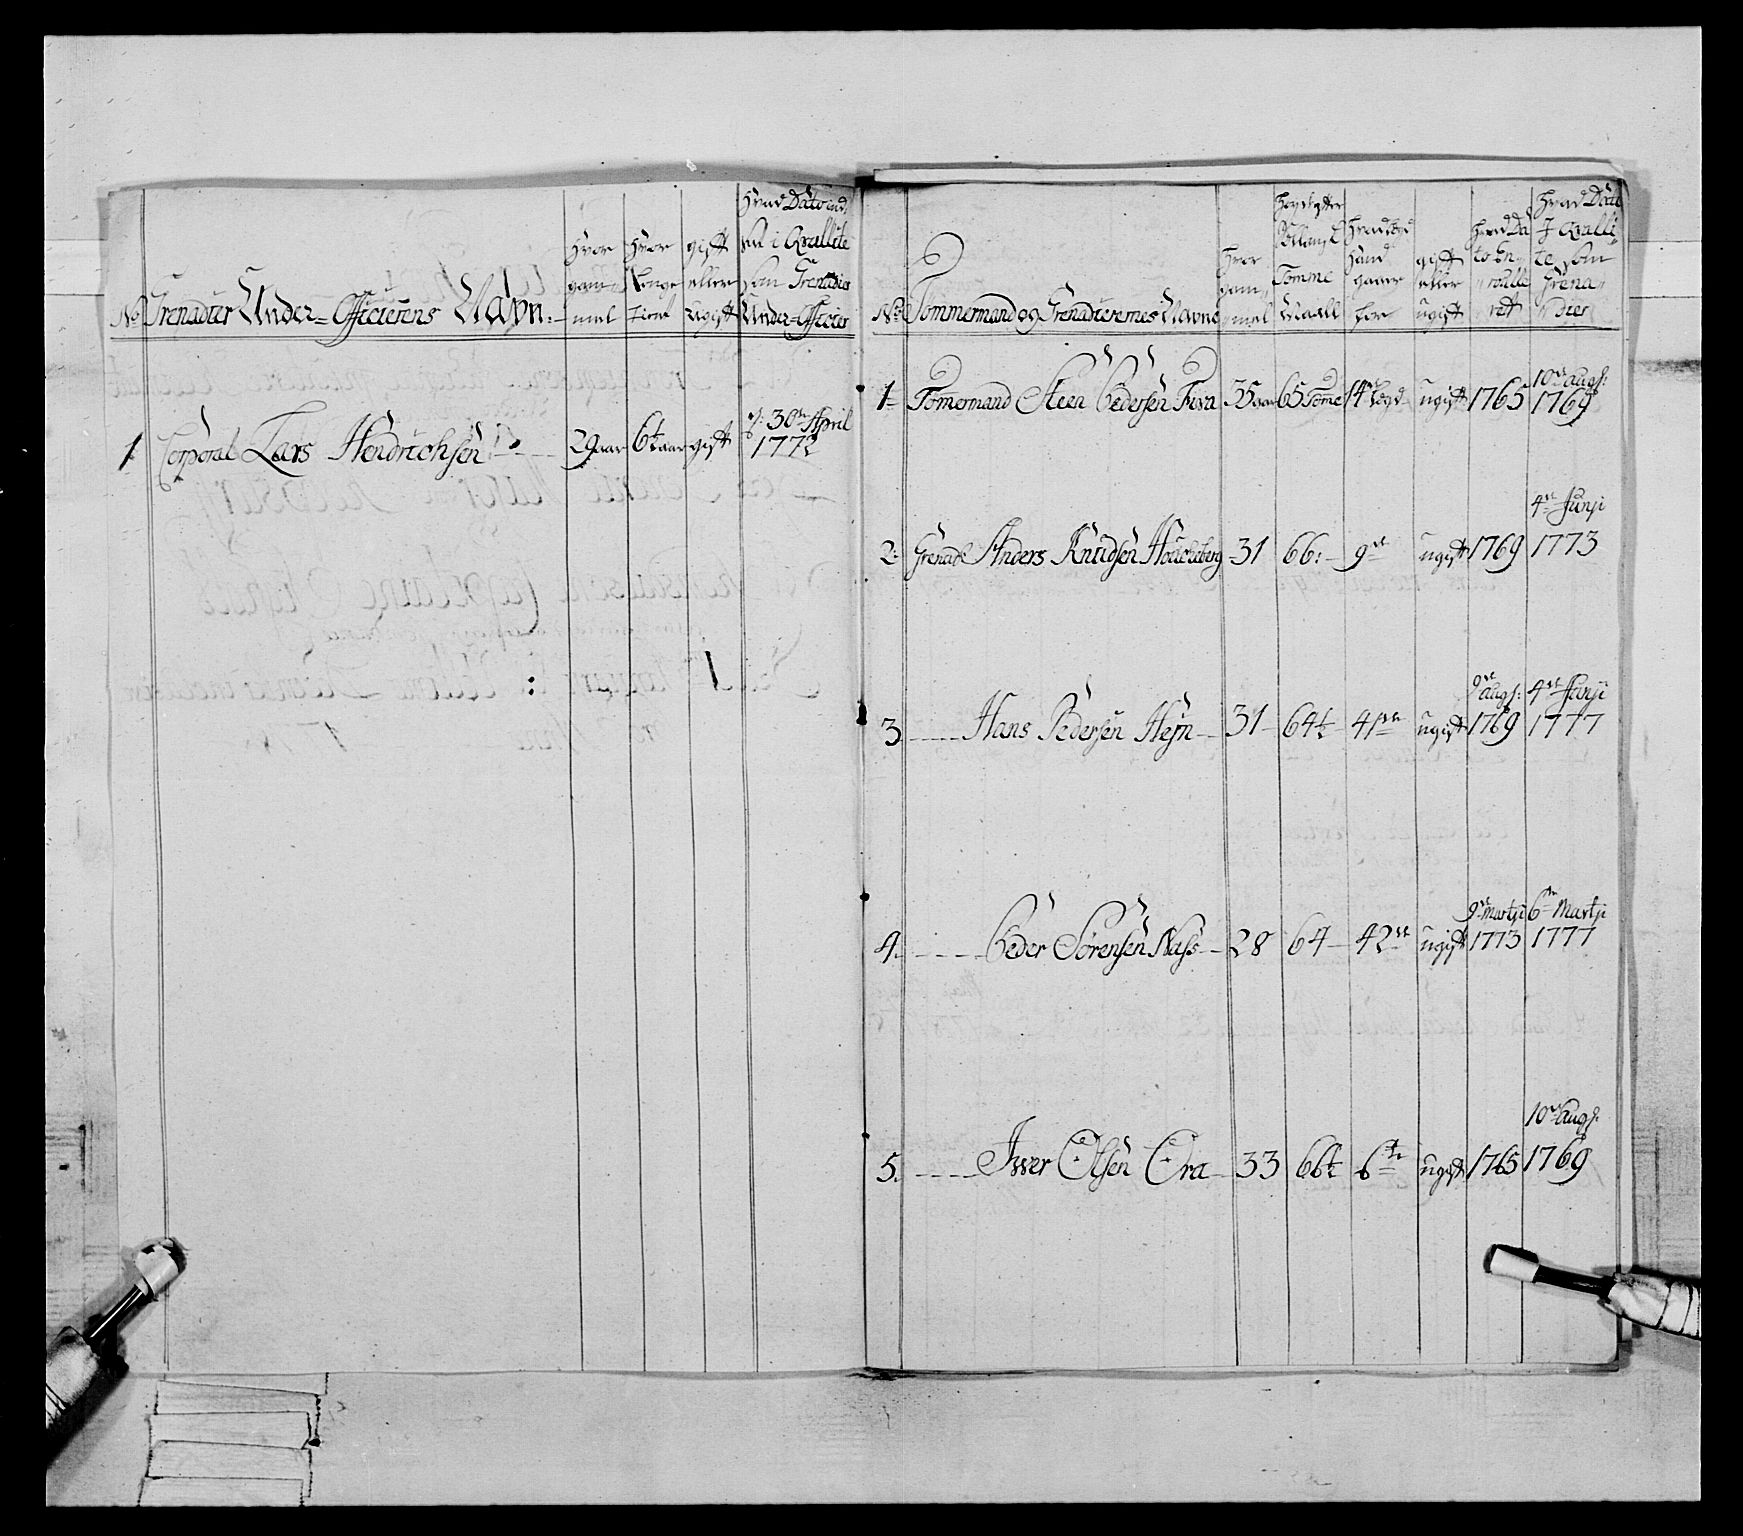 No Grenadier Under-Officierens Navn.
Hvor gam- mel
Hvor lenge tient
gift eller ugift
Hvad Dato ind, i Qvallite som Grenadier Under-Officier
1 Corporal Lars Hendrichsen 29 aar 6½ aar gift d: 30te April 1772
No Tømmermand og Grenadierernes Navne
Hvor gam mel
Tomme Maall
gaaer for
gift eller ugift
Hvad Da to En, rulle ret
Hvad Dato J Qvalli- te som Grena- dier
1 Tømermand Steen Pedersen 35 aar 65 Tome 14de Legd ugift 1765 10de augs: 1769
2: Grenad: Anders Knudsen 31 66: 9de ugift 1769 4de Junji 1773
3. Hans Pedersen Hejn 31 64½ 41de ugift 9de augs: 1769 4de Junji 1777
4. Peder Sørensen Næss 28 64 42de ugift 9de Martji 1773 6te Martji 1777
5. Iwer Olsen Ora 33 66½ 6te ugift 1765 10de augs: 1769